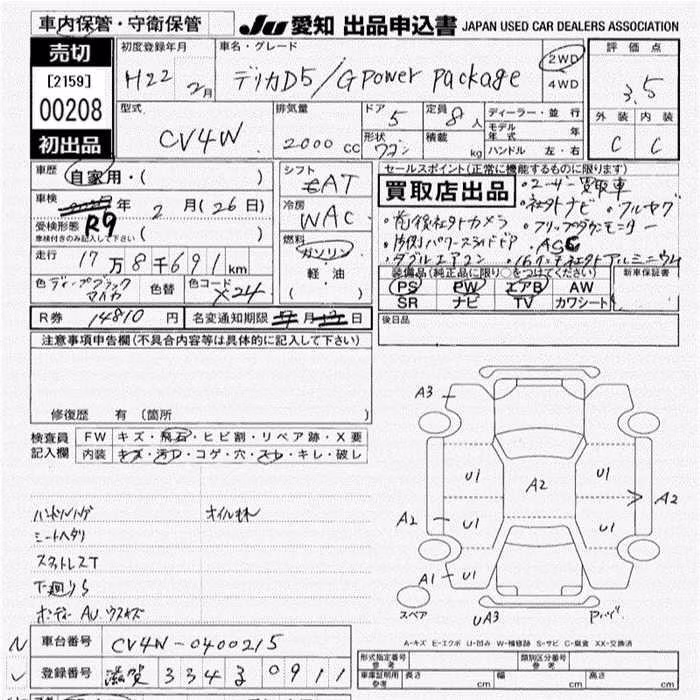 車内保管・守衛保管
JU 愛知 出品申込書 JAPAN USED CAR DEALERS ASSOCIATION
売切
[2159]
00208
初出品
初度登録年月 車名・グレード
H22 2月 デリカD5/G Power Package
2WD
4WD
評価点
3.5
外装 内装
C C
型式 CV4W
排気量 2000 CC
ドア 5
定員 8人
形状 ワゴン
積載 kg
ディーラー・並行
モデル年式 年
ハンドル 左・右
車歴 自家用・( )
車検 R9年 2月(26日)
受検形態 ( )
車検付きのみ記入して下さい
走行 17万8千691km
色 ディープブラックマイカ 色替 色コード X24
シフト AT
冷房 WAC
燃料 ガソリン
軽・油
( )
セールスポイント(正常に機能するものに限ります)
買取店出品
・ユーザー買取車
・社外ナビ・フルセグ
・前後社外カメラ・フリップダウンモニター
・両側パワースライドドア・ASC
・ダブルエアコン・16インチ社外アルミニウム
装備品(純正品に限り○をつけてください) 新車保証書
PS PW エアB AW
SR ナビ TV カワシート
R券 14810円 名変通知期限 月 日
後日品
注意事項申告欄(不具合内容等は具体的に記入して下さい)
修復歴 有(箇所 )
検査員 FW キズ・飛石・ヒビ割・リペア跡・X要
記入欄 内装 キズ・汚れ・コゲ・穴・スレ・キレ・破レ
ハンドルハゲ オイル
シートヘタリ
スタットレスT
下廻りS
ボディー AU.ウスキズ
A3
U1 A2 U1
A2
A2 U1 U1
A1 U1
スペア UA3
A-キズ E-エクボ U-凹み W-補修跡 S-サビ C-腐食 XX-交換済
車台番号 CV4W-0400215
登録番号 滋賀 334 る 0911
形式指定番号 参考 類別区分番号 参考
車庫証明用 参考 長さ cm 幅 cm 高さ cm